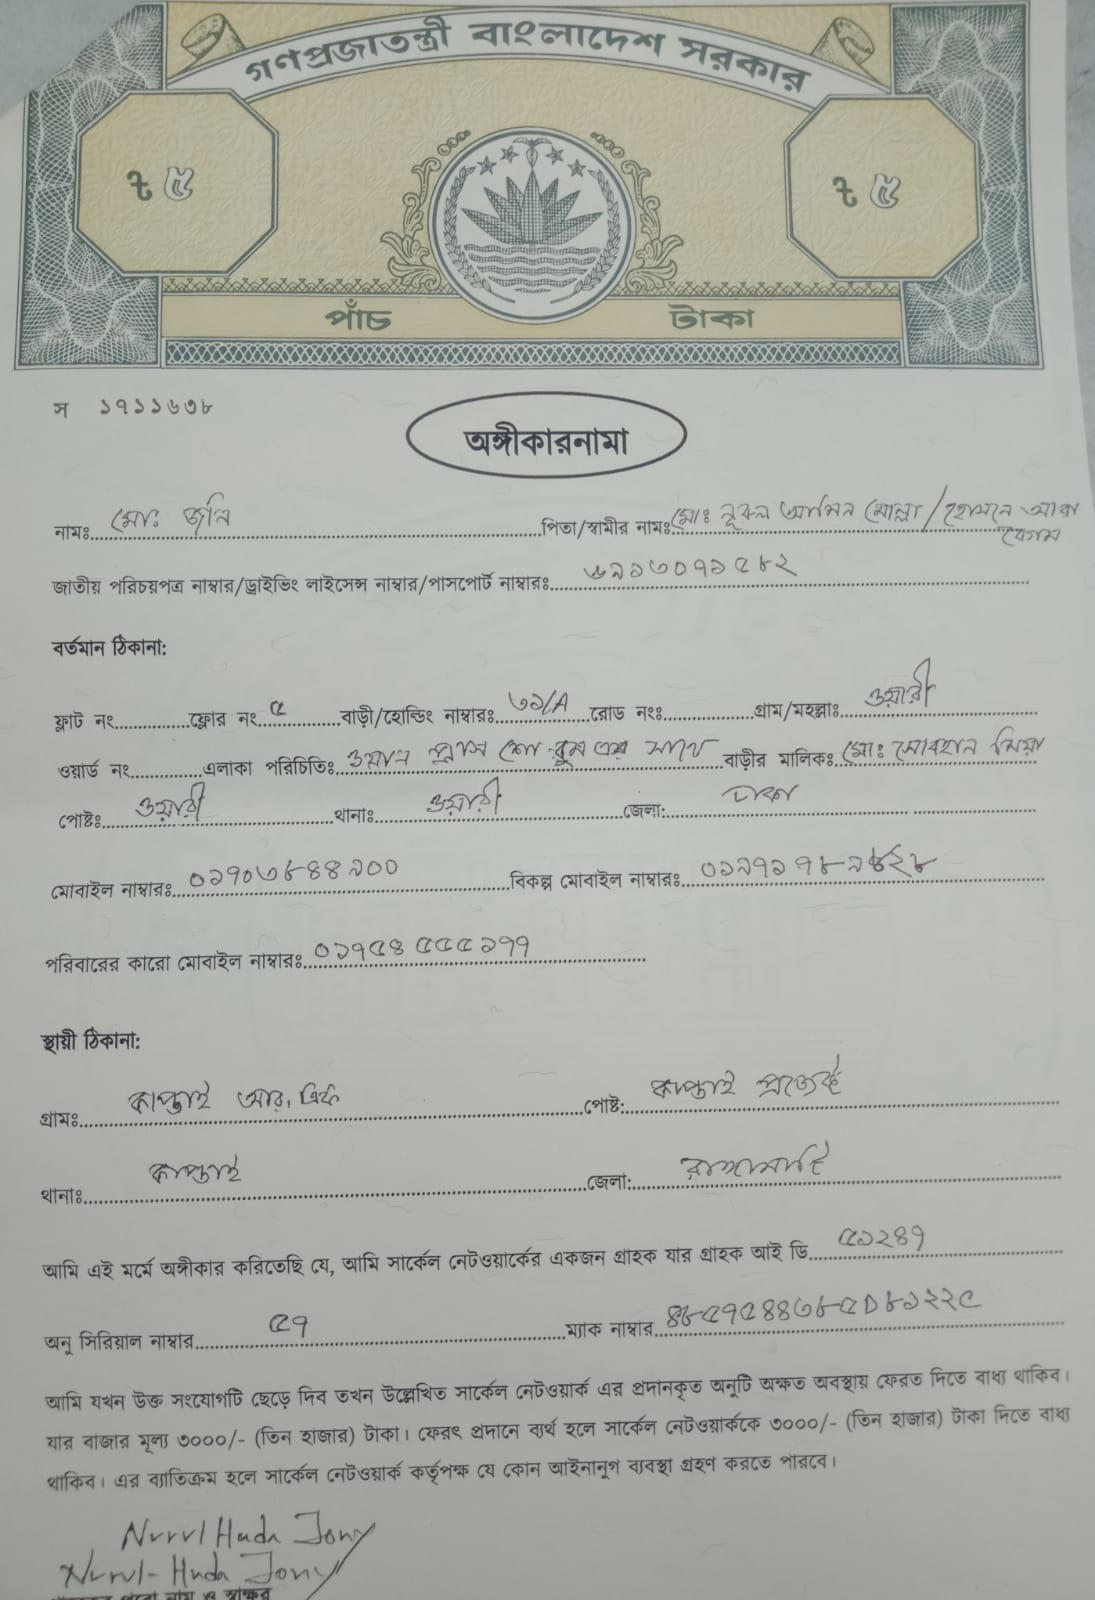 গণপ্রজাতন্ত্রী বাংলাদেশ সরকার
৳ ৫ ৳ ৫
পাঁচ টাকা
স ১৭১১৬৩৮
অঙ্গীকারনামা
নামঃ মোঃ জনি পিতা/স্বামীর নামঃ মোঃ নূরুল আমিন মোল্লা/হোসনে আরা বেগম
জাতীয় পরিচয়পত্র নাম্বার/ড্রাইভিং লাইসেন্স নাম্বার/পাসপোর্ট নাম্বারঃ ৬৯১৩০৭১৫৮২
বর্তমান ঠিকানা:
ফ্লাট নং ফ্লোর নং ৫ বাড়ী/হোল্ডিং নাম্বারঃ ৩৯/A রোড নংঃ গ্রাম/মহল্লাঃ ওয়ারী
ওয়ার্ড নং এলাকা পরিচিতিঃ ওয়ান প্লাস শো-রুম এর সাথে বাড়ীর মালিকঃ মোঃ সোবহান মিয়া
পোষ্টঃ ওয়ারী থানাঃ ওয়ারী জেলা: ঢাকা
মোবাইল নাম্বারঃ ০১৭০৩৮৪৪৯০০ বিকল্প মোবাইল নাম্বারঃ
পরিবারের কারো মোবাইল নাম্বারঃ ০১৭৫৪৫৫৫১৭৭
স্থায়ী ঠিকানা:
গ্রামঃ কাপ্তাই আর, এফ পোষ্ট: কাপ্তাই প্রজেক্ট
থানাঃ কাপ্তাই জেলা: রাঙ্গামাটি
আমি এই মর্মে অঙ্গীকার করিতেছি যে, আমি সার্কেল নেটওয়ার্কের একজন গ্রাহক যার গ্রাহক আই ডি ৫১২৪৭
অনু সিরিয়াল নাম্বার ৫৭ ম্যাক নাম্বার ৪৮৫৭৫৪৪৩৮৫D৮১২২C
আমি যখন উক্ত সংযোগটি ছেড়ে দিব তখন উল্লেখিত সার্কেল নেটওয়ার্ক এর প্রদানকৃত অনুটি অক্ষত অবস্থায় ফেরত দিতে বাধ্য থাকিব।
যার বাজার মূল্য ৩০০০/- (তিন হাজার) টাকা। ফেরৎ প্রদানে ব্যর্থ হলে সার্কেল নেটওয়ার্ককে ৩০০০/- (তিন হাজার) টাকা দিতে বাধ্য
থাকিব। এর ব্যতিক্রম হলে সার্কেল নেটওয়ার্ক কর্তৃপক্ষ যে কোন আইনানুগ ব্যবস্থা গ্রহণ করতে পারবে।
Nurul Huda Jony
Nurul-Huda Jony